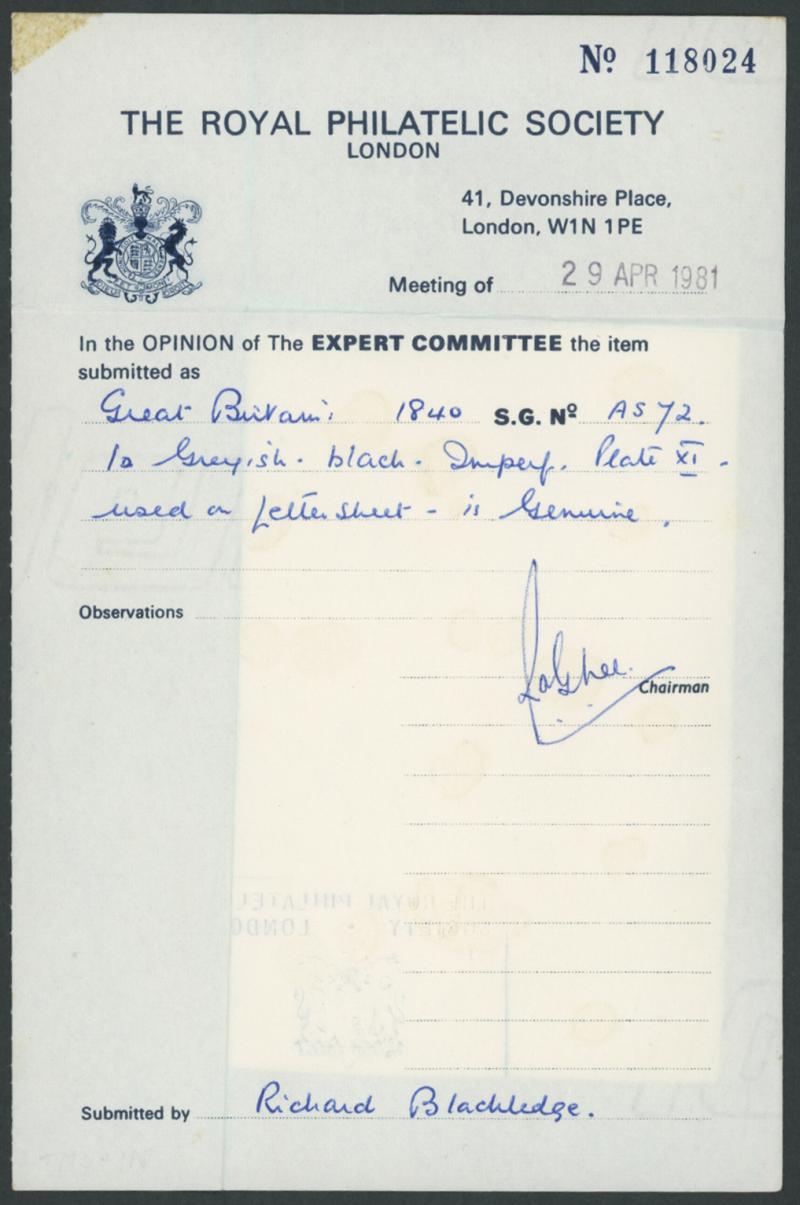 Nº 118024
THE ROYAL PHILATELIC SOCIETY
LONDON
41, Devonshire Place,
London, W1N 1PE
Meeting of 29 APR 1981
In the OPINION of The EXPERT COMMITTEE the item
submitted as
Great Britain. 1840 S.G. Nº AS72.
1d Greyish-black. Imperf. Plate XI.
used on Lettersheet - is Genuine.
Observations
Chairman
THE ROYAL PHILATELI
SOCIETY • LONDO
Submitted by Richard Blackledge.